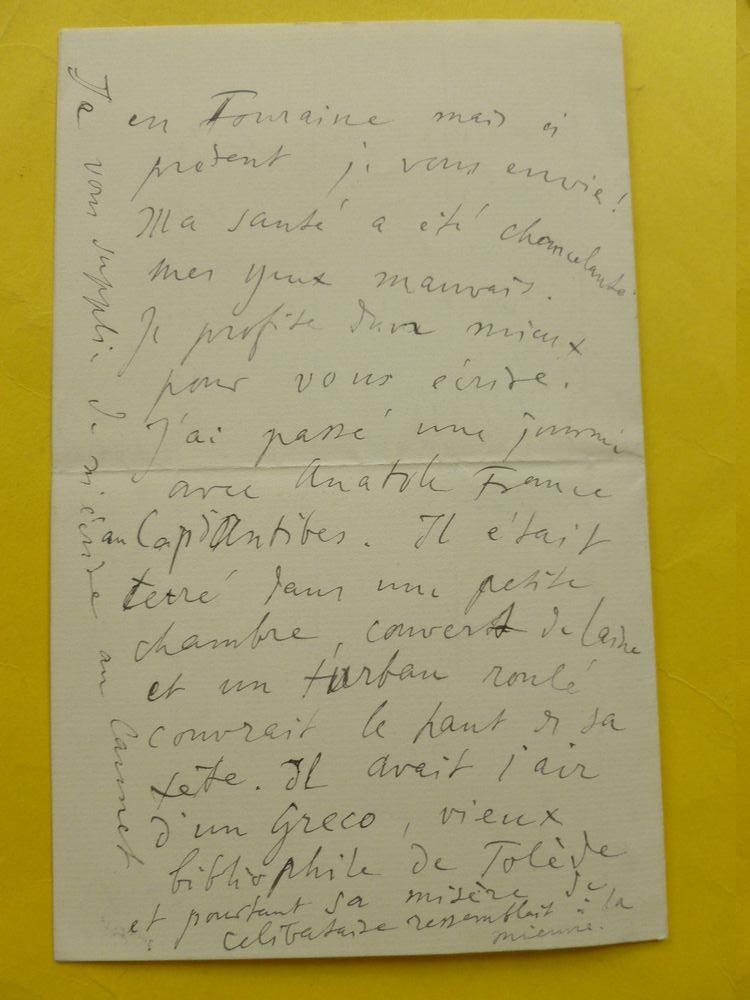 en Touraine mais à
présent je vous envie!
Ma santé a été chancelante
mes yeux mauvais.
Je profite d'un mieux
pour vous écrire.
J'ai passé une journée
avec Anatole France
au Cap d'Antibes. Il était
terré dans une petite
chambre, couvert de laine
et un turban roulé
couvrait le haut de sa
tête. Il avait l'air
d'un Greco, vieux
bibliophile de Tolède
et pourtant sa misère de
célibataire ressemblait à la
mienne.
Je vous supplie de m'écrire au Cannet